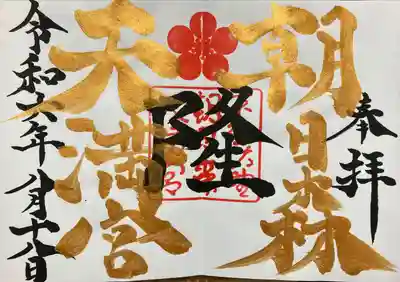 奉拝
朝日森
天満宮
隆生
令和六年八月十八日